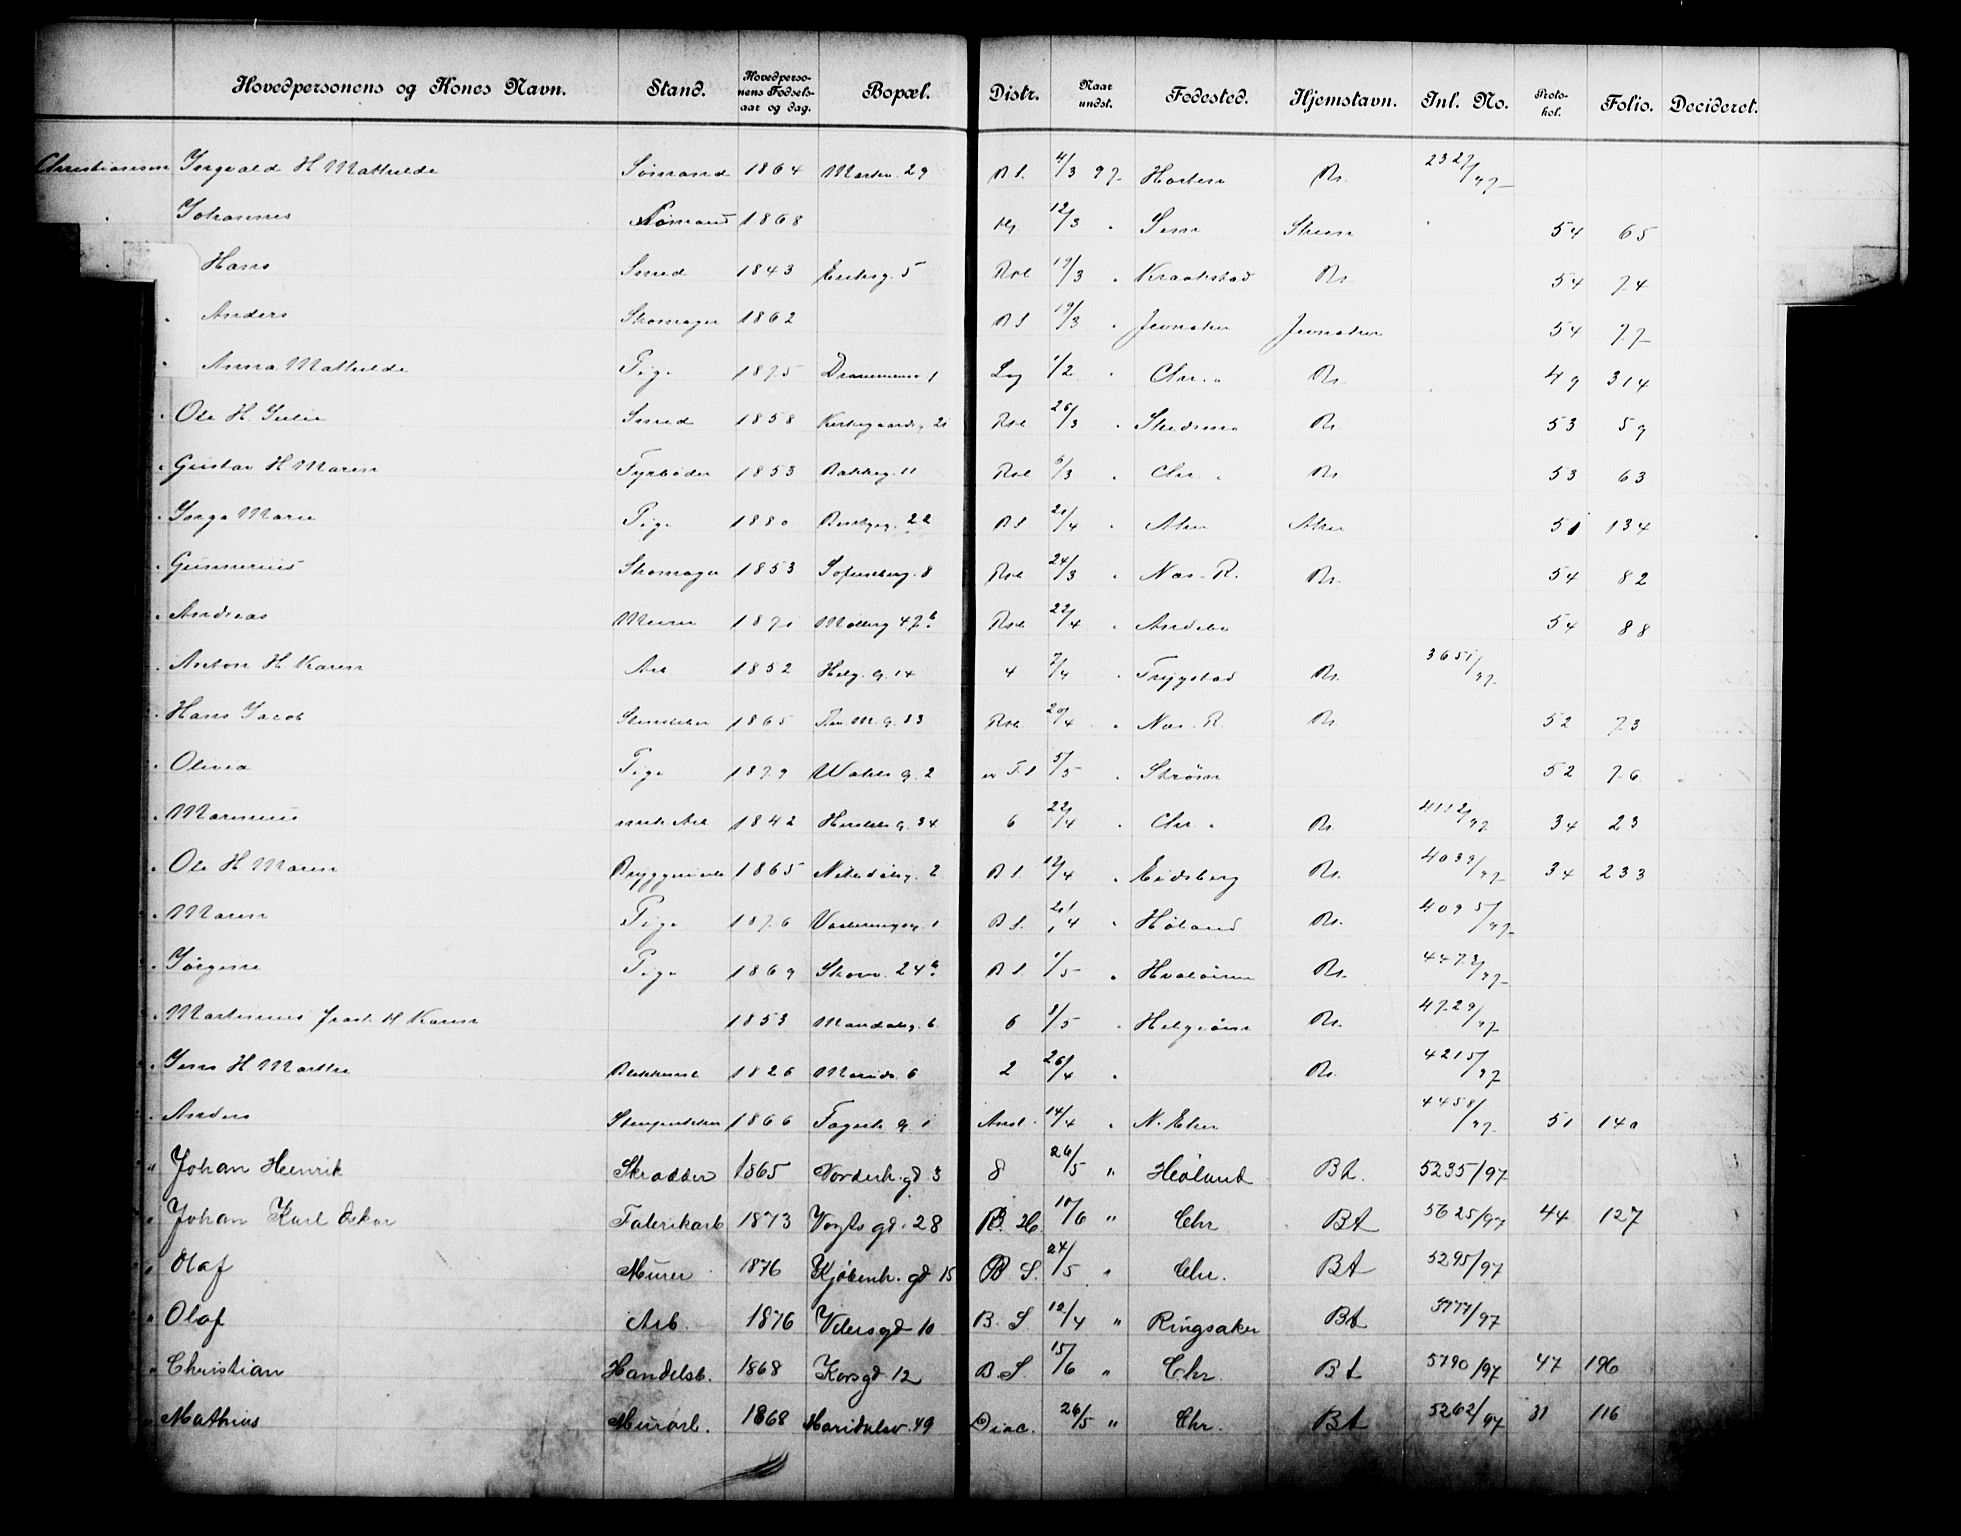 Hovedpersonens og Kones Navn. Stand. Hovedpersonens Fødselsaar og dag. Bopæl. Distr. Naar undst. Fødested. Hjemstavn. Inl. No. Protokol. Folio. Decideret.
Christiansen Ingvald H Mathilde Sømand 1864 29 B S. 4/3 97 Horten Bt. 2327/97
" Johannes Sømand 1868 12/3 " Sem Skien 54 65
Hans Smed 1843 Eriksg. 5 Rol 19/3 " Kraakstad Bt. 54 74
" Anders Skomager 1862 B S 19/3 " Jevnaker Jevnaker 54 77
" Anna Mathilde Pige 1875 1 1/2 " Chr. Bt. 49 314
" Ole H Julie Smed 1858 Kirkegaardsg. 21 Rol 26/3 " Skedsmo Bt. 53 59
" Gustav H Maren Fyrbøder 1853 Bakkeg. 11 Rol 6/3 " Chr. Bt. 53 63
" Inga Marie Pige 1880 22 B S 21/4 " Aker Aker 51 134
" Gunnerius Skomager 1853 Sofienberg. 8 Rol 24/3 " Næs. R. Bt. 54 82
" Andreas Murer 1871 Møllerg 47 b. Rol 22/4 " Andebu 54 88
" Anton H Karen Arb 1852 Helg. G. 14 4 7/4 " Trygstad Bt. 3651/97
" Hans Jacob 1865 83 Rol 20/4 " Næs. R. Bt. 52 73
" Olivia Pige 1879 Wahls G. 2 5/5 " Strøm 52 76
" Marinius 1842 G. 34 6 22/4 " Chr. Bt. 4112/97 34 23
" Ole H Maren 1865 Nitedalsg. 2 B S. 12/4 " Eidsberg Bt. 4039/97 34 233
" Maren Pige 1876 1 B S. 21/4 " Høland Bt. 4095/97
" Jørgine Pige 1869 Skovv. 24 b. B S. 1/5 " Hvaløerne Bt. 4472/97
" Martinius H Karen 1853 Mandalsg. 6 6 3/5 " Helgøen Bt. 4729/97
" Jens H Marthe 1826 Marids. 6 2 26/4 " Bt. 4215/97
" Anders 1866 G. 1 14/4 " N. Eker 4458/97 51 140
" Johan Henrik Skrædder 1865 Norderh. gd 3 8 26/5 " Høland Bt. 5235/97
" Johan Karl Oskar Fabrikarb 1873 Vogts gd. 28 B. H. 10/6 " Chr. Bt 5625/97 44 127
" Olaf Murer 1876 Kjøbenh. gd 15 B S. 24/5 " Chr. Bt 5295/97
" Olaf Arb. 1876 gd 10 B. S. 12/4 " Ringsaker Bt 3777/97
" Christian Handelsb. 1868 Korsgd 12 B S. 15/6 " Chr. Bt 5790/97 47 196
" Mathias Murarb. 1868 Maridalsv. 49 Diac. 26/5 " Chr. Bt 5262/97 31 116